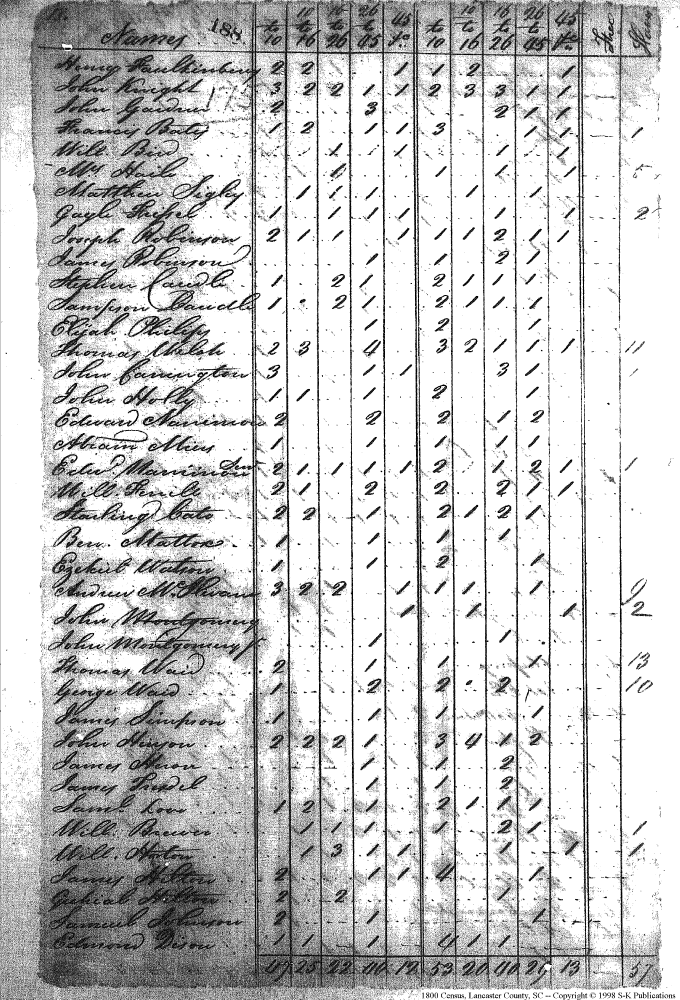 Names 188 to 10 10 to 16 16 to 26 26 to 45 45 &c to 10 10 to 16 16 to 26 26 to 45 45 &c Slaves
Henry Faulkenbury 2 2 1 1 2 1
John Knight 3 2 2 1 1 2 3 3 1 1
John Gardner 2 3 2 1 1
Francis Bats 1 2 1 1 3 1 1 1
Will. 1 1 1 1
Mrs Haile 1 1 1 1 5
Matthew 1 1 1 1 1
Gayle 1 1 1 1 1 1 2
Joseph Robinson 2 1 1 1 1 1 2 1 1
James Robinson 1 1 2 1
Stephen Caudle 1 2 1 2 1 1 1
Sampson Caudle 1 2 1 2 1 1 1
Elijah Philips 1 2 1
Thomas Welsh 2 3 4 3 2 1 1 1 11
John Carrington 3 1 1 3 1 1
John Holly 1 1 1 2 1
Edward Narrimore 2 2 2 1 2
Abram Miers 1 1 1 1 1
Edwd. Narrimore Senr 2 1 1 1 1 2 1 2 1 1
Will. 2 1 2 2 2 1 1
Starling Cato 2 2 1 2 1 2 1
Ben. Mattox 1 1 1 1
Ezekiel Watson 1 1 2 1
Andrew McIlwain 3 2 2 1 1 1 1 9
John Montgomery 1 1 1 2
John Montgomery Jr 1 1
Thomas Waid 2 1 1 1 13
George Waid 1 2 2 2 10
James Simpson 1 1 1 1
John Hinson 2 2 2 1 3 4 1 2
James 1 1 2
James 1 1 2
Saml. Love 1 2 1 2 1 1 1
Will. Brewer 1 1 1 1 2 1 1
Will. Horton 1 3 1 1 1 1 1
James Hilton 2 1 1 4 1
Hilton 2 2 1
Samuel Johnson 2 1 1
Edmond 1 1 1 4 1 1
47 25 22 40 12 53 20 40 25 13 57
1800 Census, Lancaster County, SC -- Copyright © 1998 S-K Publications